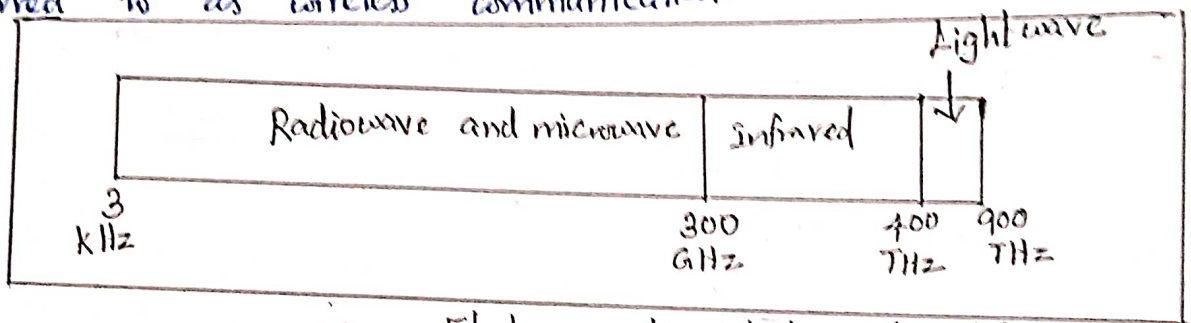 to as wireless
Light wave
Radiowave and microwave
Infrared
3
kHz
300
GHz
400
THz
900
THz